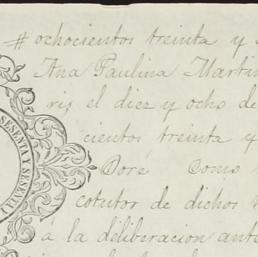 # ochocientos treinta y s
Ana Paulina Martin
ris el diez y ocho de
cientos treinta y
Doré como
cotutor de dichos
á la deliberacion ante
SESENTA Y SESENTA